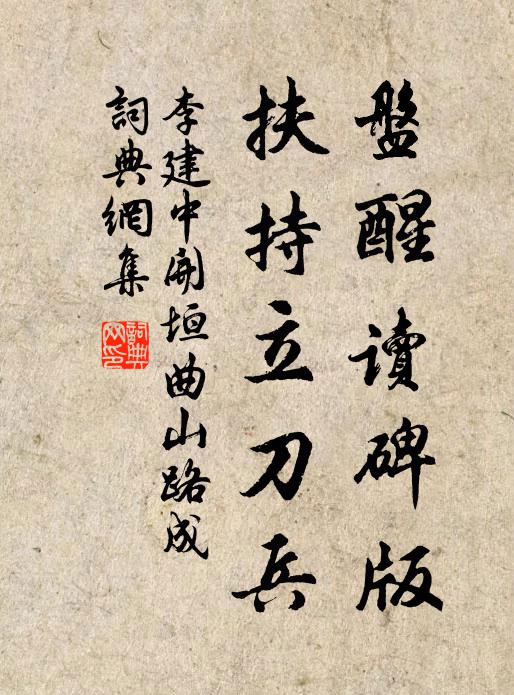 盤醒讀碑版
扶持立刀兵
李建中開垣曲山路成
詞典網集
詞典
网印